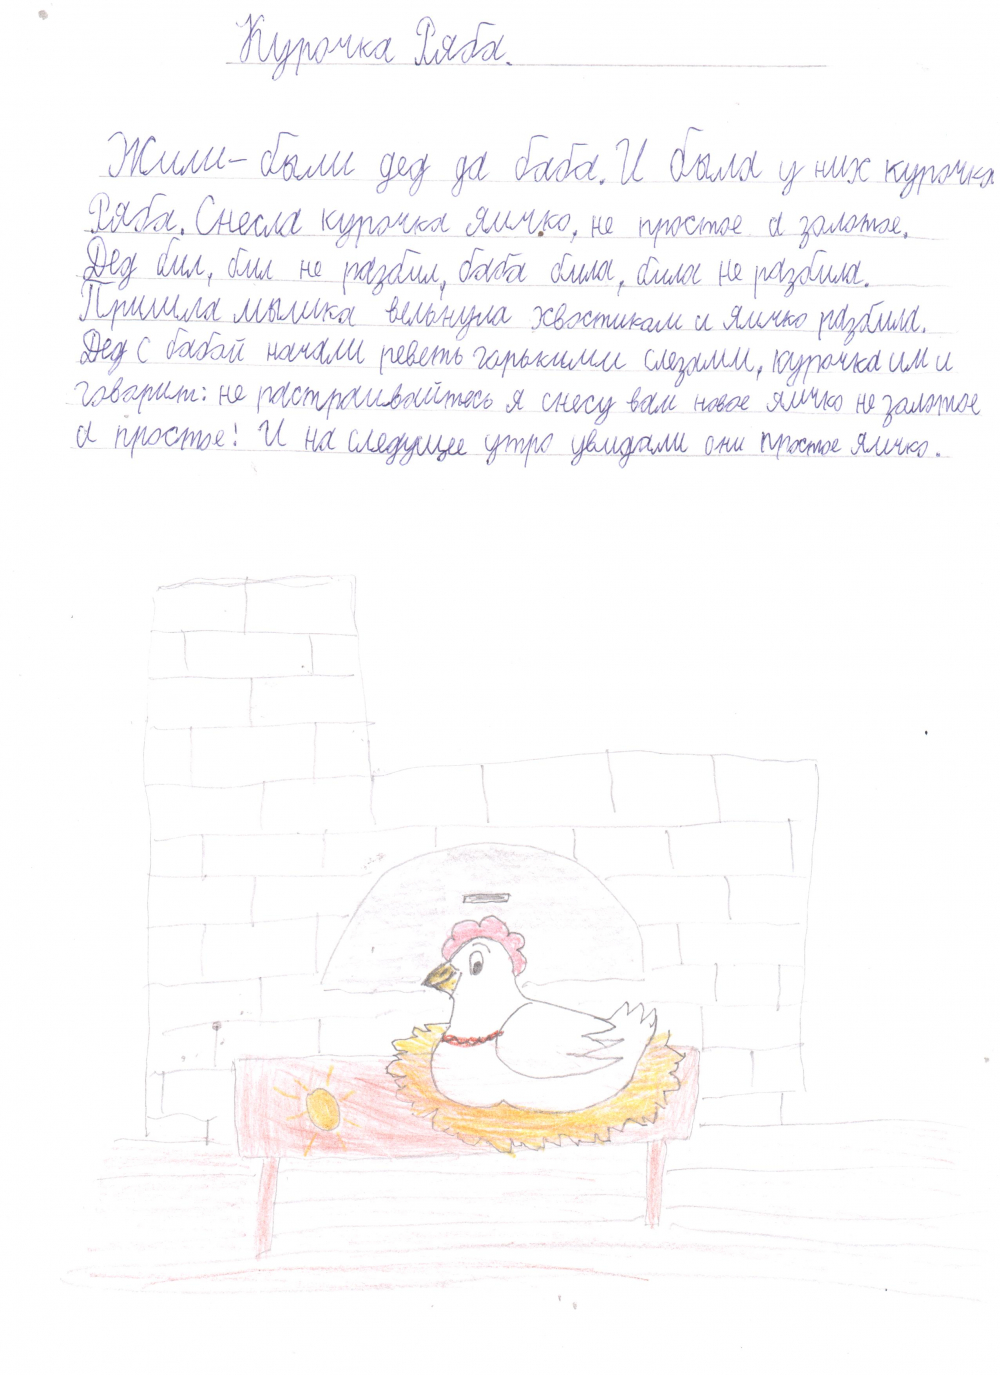 Курочка Ряба.
Жили-были дед да баба. И была у них курочка
Ряба. Снесла курочка яичко, не простое а золотое.
Дед бил, бил не разбил, баба била, била не разбила.
Пришла мышка вельнула хвостиком и яичко разбила.
Дед с бабой начали реветь горькими слезами, курочка им и
говорит: не растраивайтесь я снесу вам новое яичко не золотое
а простое! И на следущее утро увидали они простое яичко.